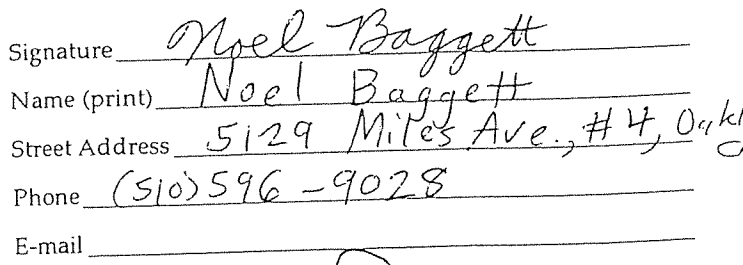 Signature Noel Baggett
Name (print) Noel Baggett
Street Address 5129 Miles Ave., #4, Oakl
Phone (510) 596-9028
E-mail